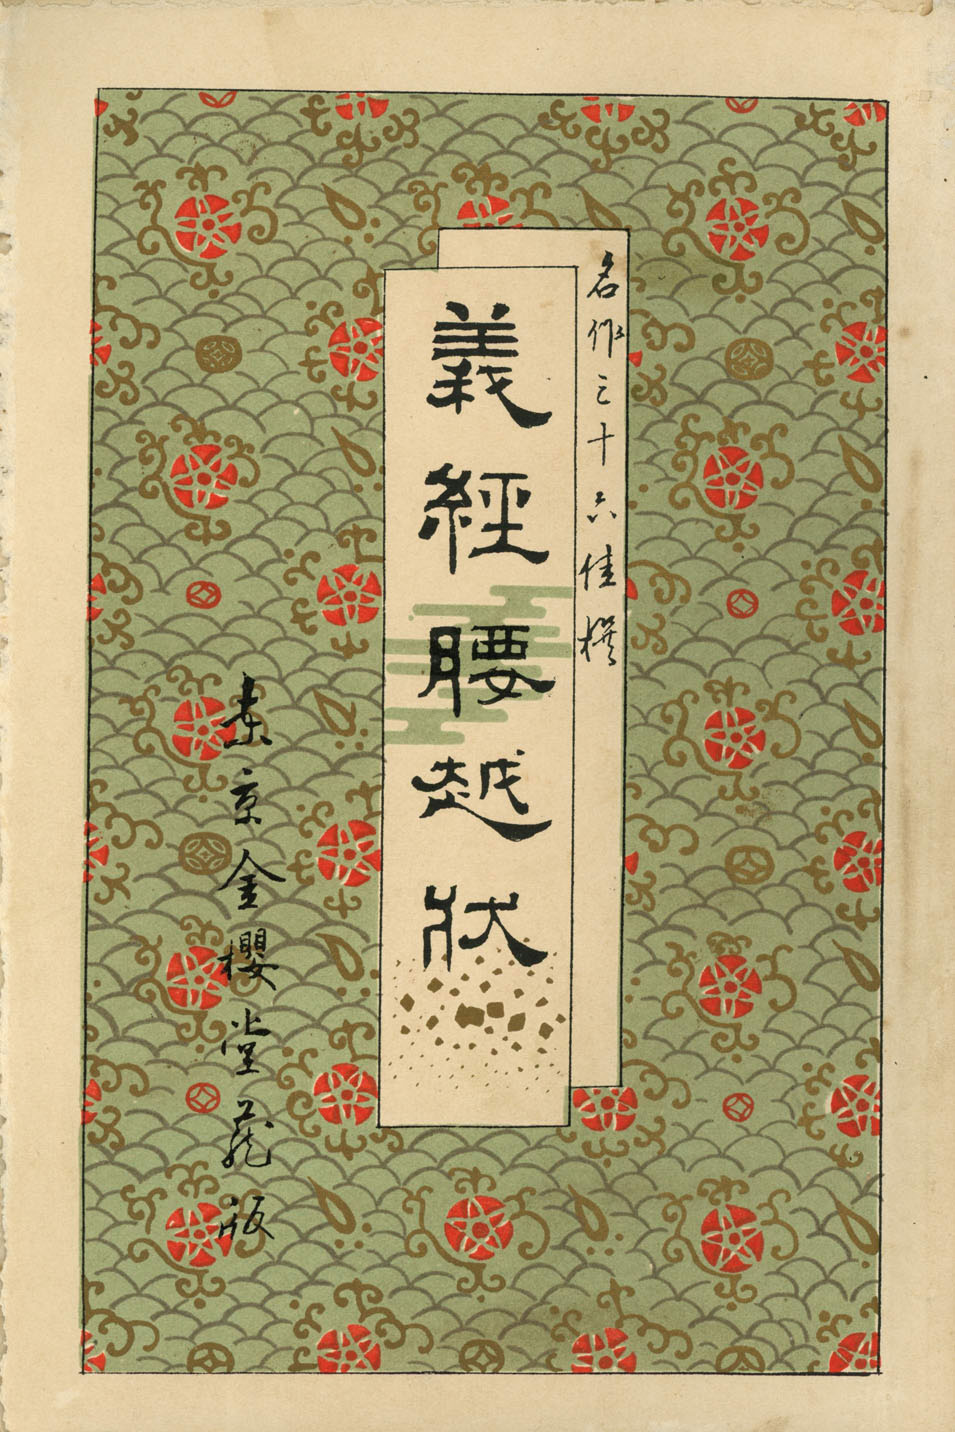 名作三十六佳撰
義經腰越状
東京金櫻堂蔵版